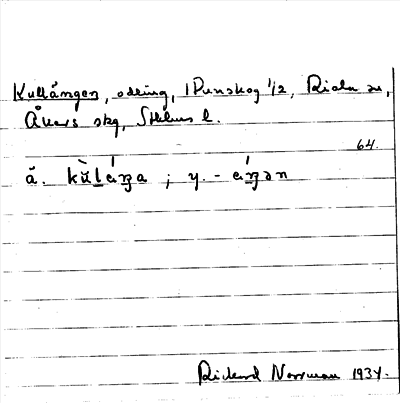 Kullängen, odling, 1 Runskog 1/2, Riala sn,
Åkers skg, Sthlms l.
64.
ä. kùlǽŋa ; y. - ǽŋən
Rickard Norrman 1934.